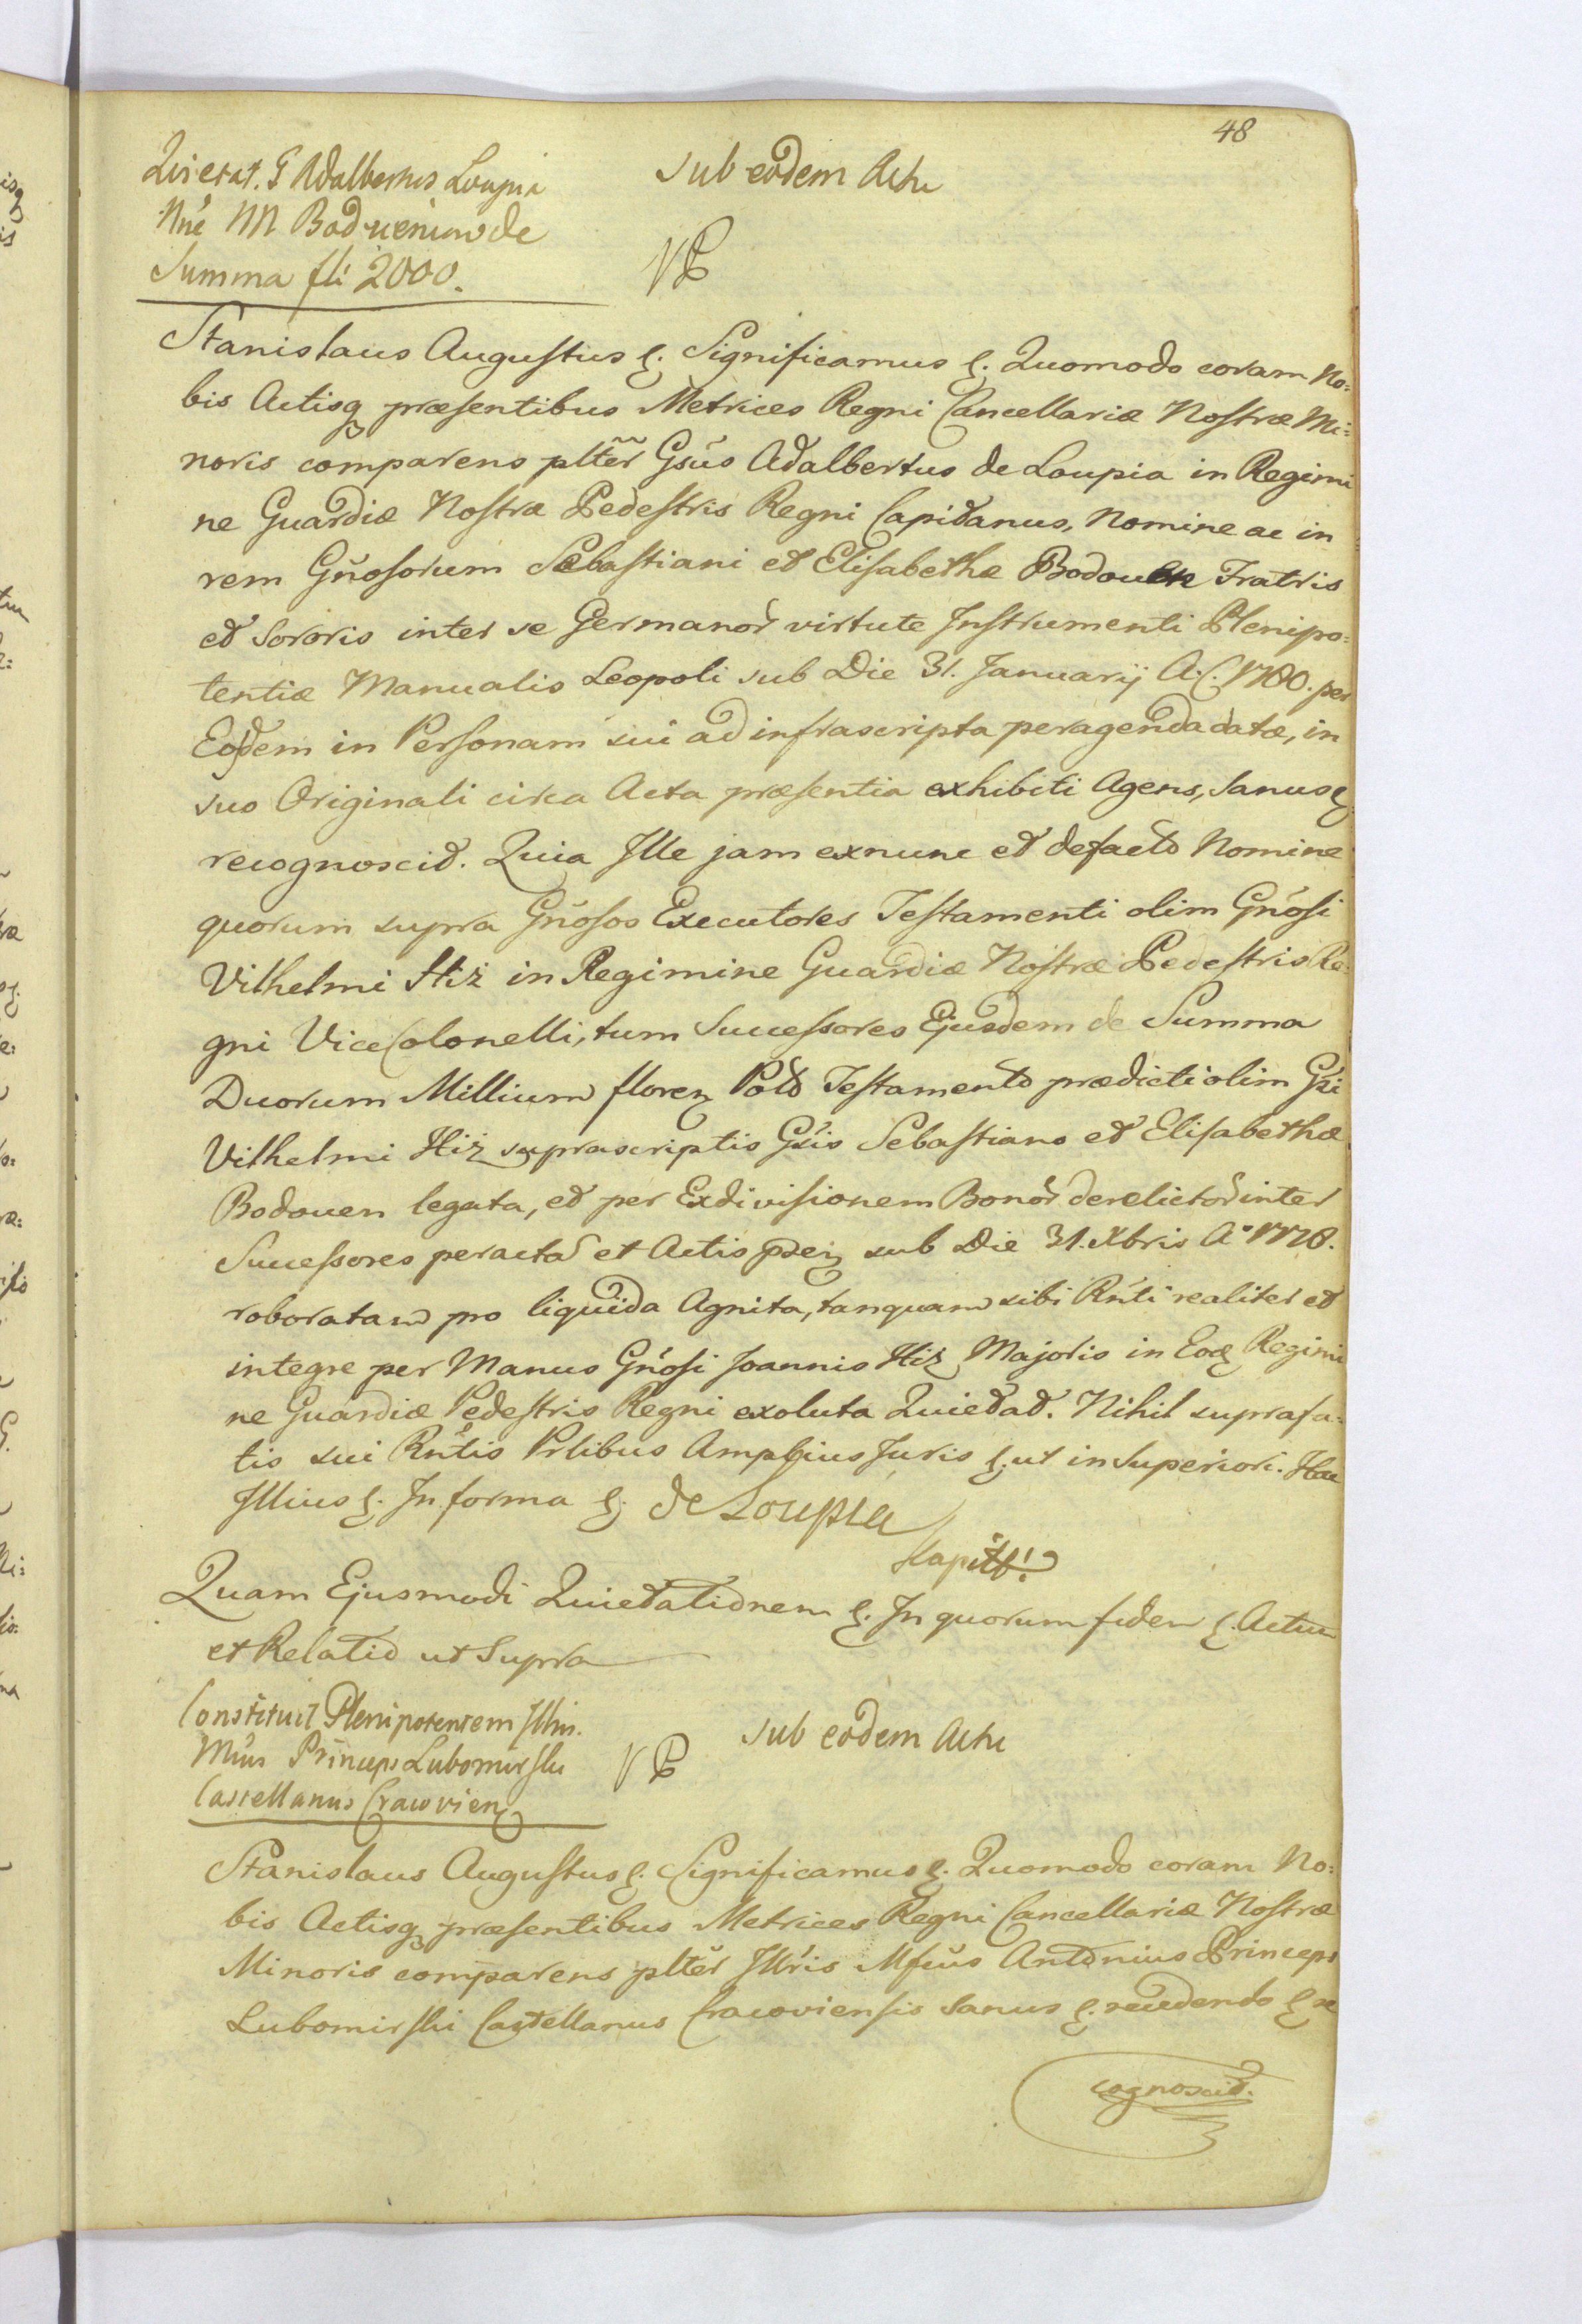 48
Quietat. G Adalbertus Loupia
Nńe M Bodueniow de
Summa fli 2000.
Sub eodem Actu
Stanislaus Augustus &. Significamus &. Quomodo coram No:
bis Actisq præsentibus Metrices Regni Cancellariæ Nostræ Mi:
noris comparens plter̃ Gsus Adalbertus de Loupia in Regimi
ne Guardiæ Nostræ Pedestris Regni Capitanus, Nomine ac in
rem Gn̄osorum Sebastiani et Elisabethæ Bodouen Fratris
et Sororis inter se Germanor̃ virtute Instrumenti Plenipo:
tentiæ Manualis Leopoli sub Die 31. Januarij A. C. 1780. per
Eosdem in Personam sui ad infrascripta peragenda datæ, in
suo Originali circa Acta præsentia exhibiti Agens, Sanus &
recognoscit. Quia Ille jam exnunc et defacto Nomine
quorum supra Gńosos Executores Testamenti olim Gńosi
Vilhelmi Hiż in Regimine Guardiæ Nostræ Pedestris Re:
gni ViceColonelli, tum Successores Ejusdem de Summa
Duorum Millium floren Pol̃d Testamento prædicti olim Gsi
Vilhelmi Hiż suprascriptis Gsis Sebastiano et Elisabethæ
Bodouen legata, et per Exdivisionem Bonor̃ derelictor̃ inter
Successores peractã et Actis præn sub Die 31. Xbris A° 1778.
roboratam pro liquida Agnita, tanquam sibi Rńti realiter et
integre per Manus Gńosi Joannis Hiż Majoris in Eod Regimi
ne Guardiæ Pedestris Regni exoluta Quietat. Nihil suprafa:
tis sui Rńtis Prlibus Amplius Juris &. ut in Superiori. Hac
Illius &. In forma &. de Loupia
Kapitt!
Quam Ejusmodi Quietationem &. In quorum fidem &. Actum
et Relatio ut Supra
Constituit Plenipotentem Illm.
Mńus Princeps Lubomirski
Castellanus Cracovien
Sub eodem Actu
Stanislaus Augustus &. Significamus &. Quomodo coram No:
bis Actisq præsentibus Metrices Regni Cancellariæ Nostræ
Minoris comparens plter̃ Illris Mfcus Antonius Princeps
Lubomirski Castellanus Cracoviensis Sanus &. recedendo & re
cognoscit.